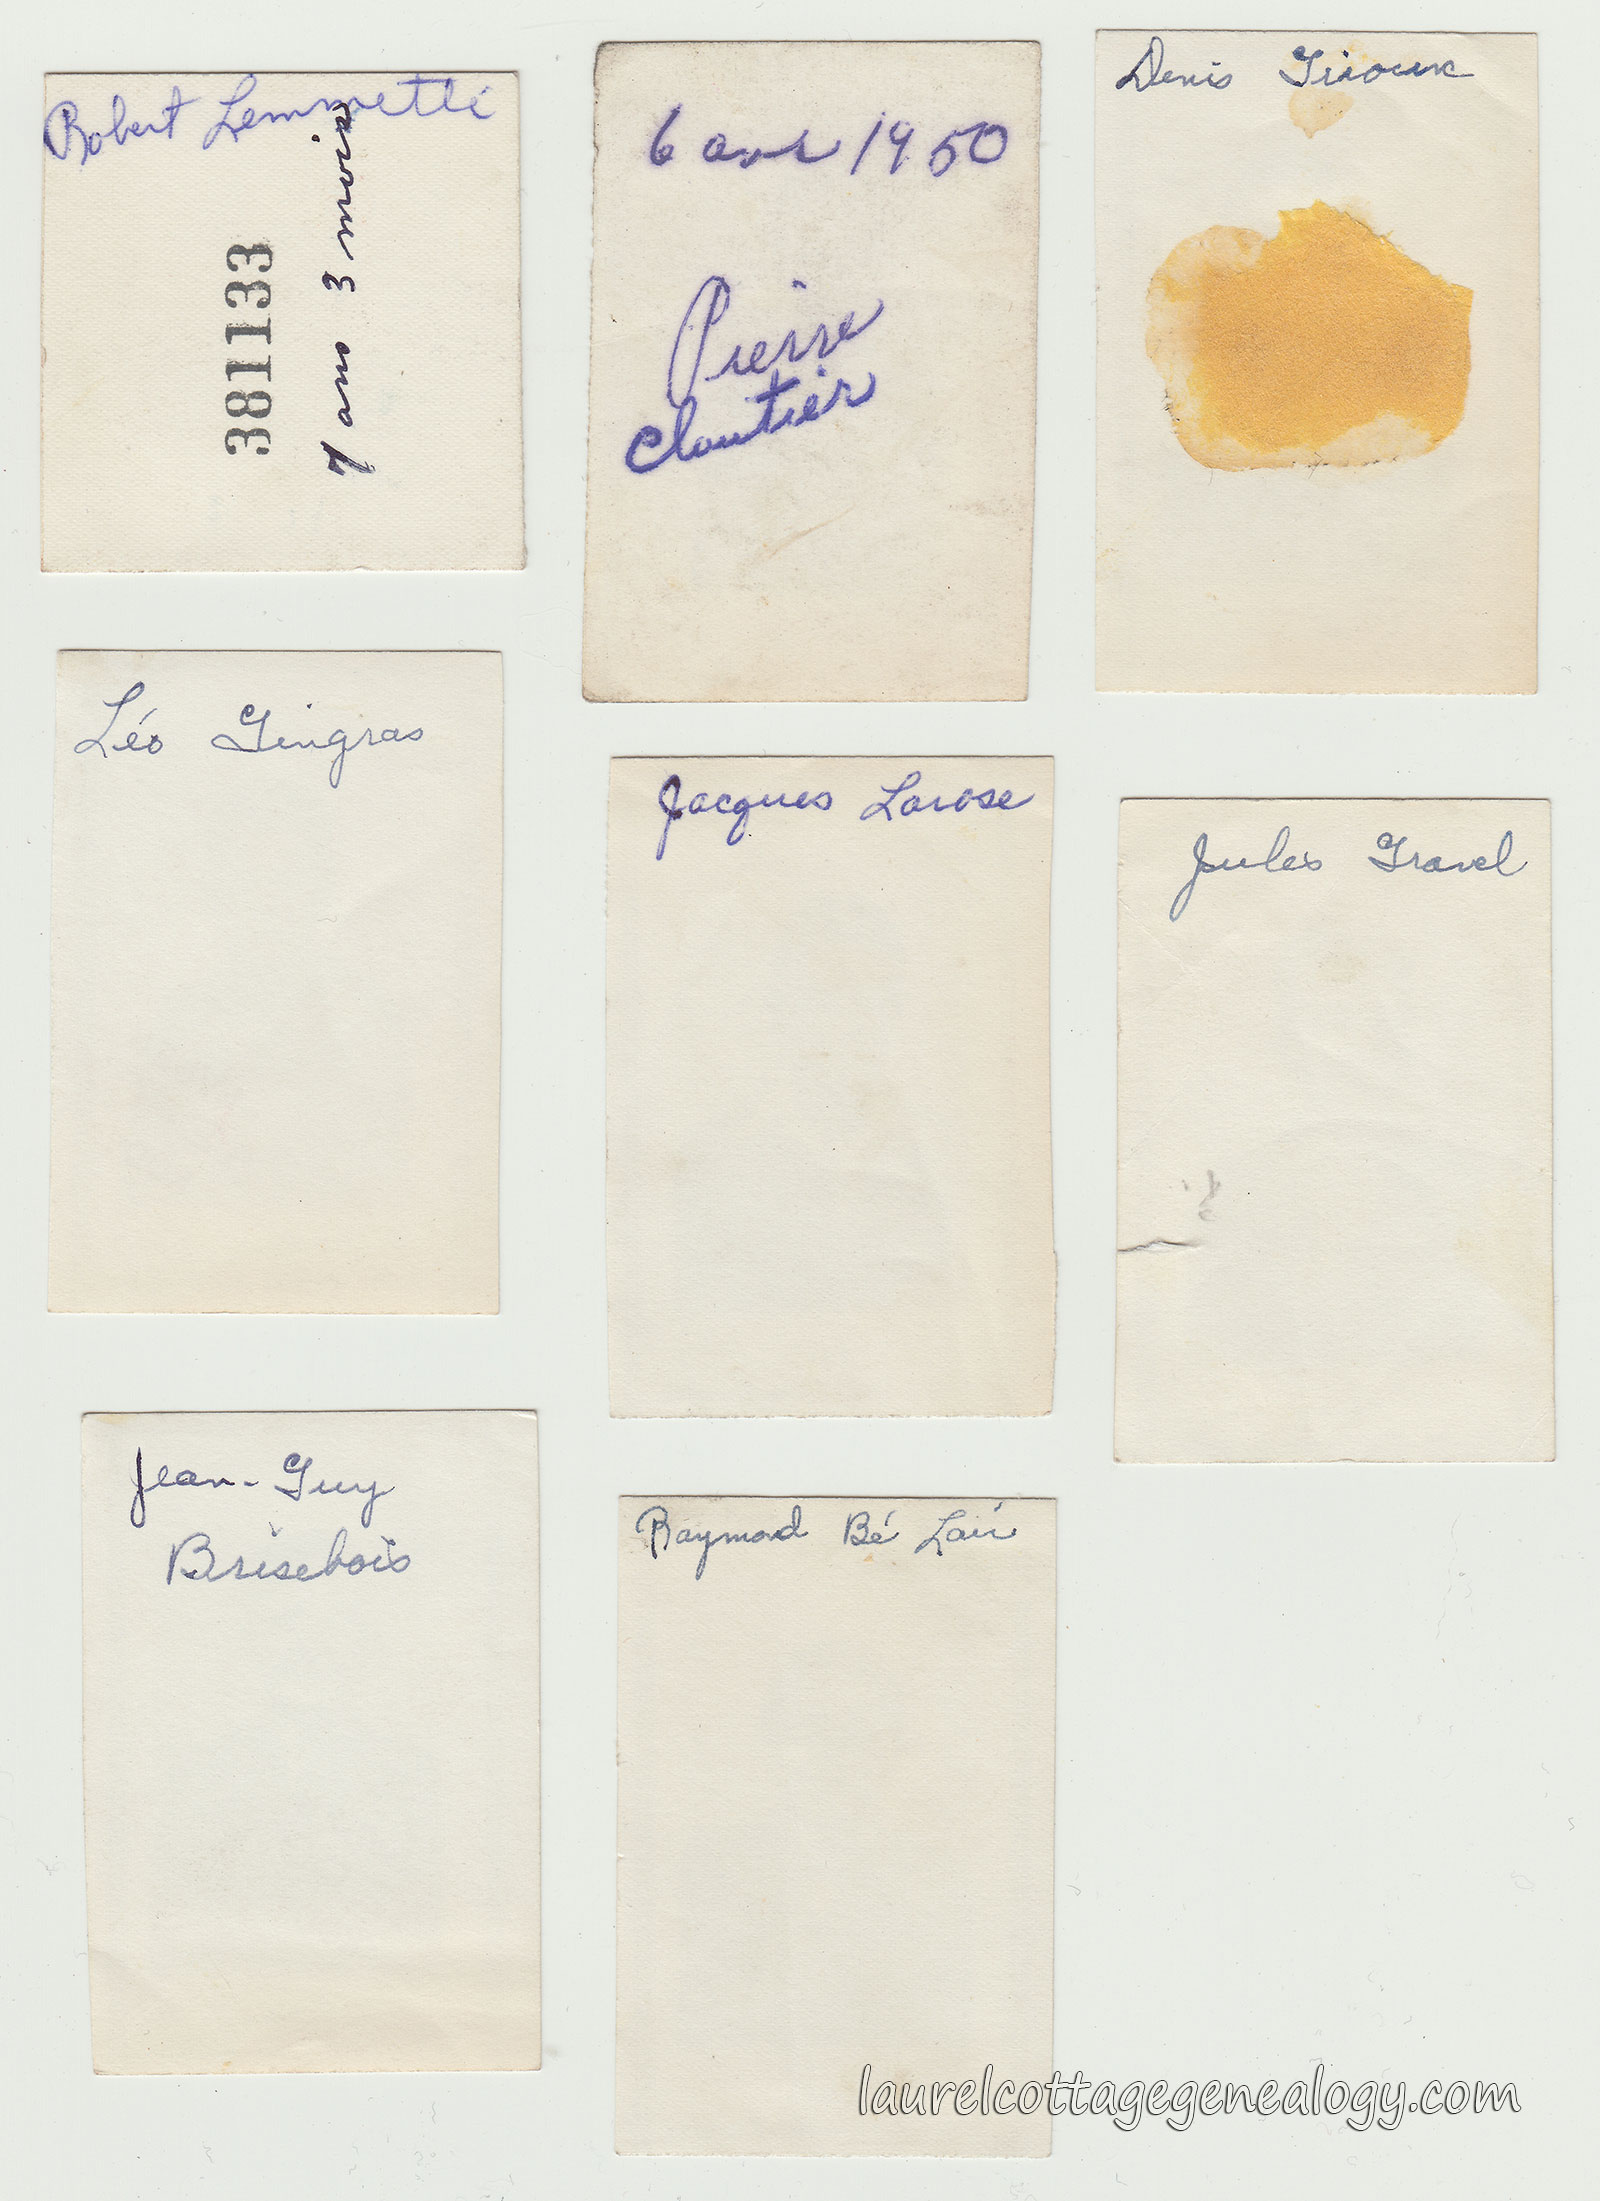 Robert Lemmetti
381133
7 ans 3 mois
6 avr 1950
Pierre
Cloutier
Denis Giroux
Léo Gingras
Jacques Larose
Jules Gravel
Jean-Guy
Brisebois
Raymond Bé Lair
laurelcottagegenealogy.com